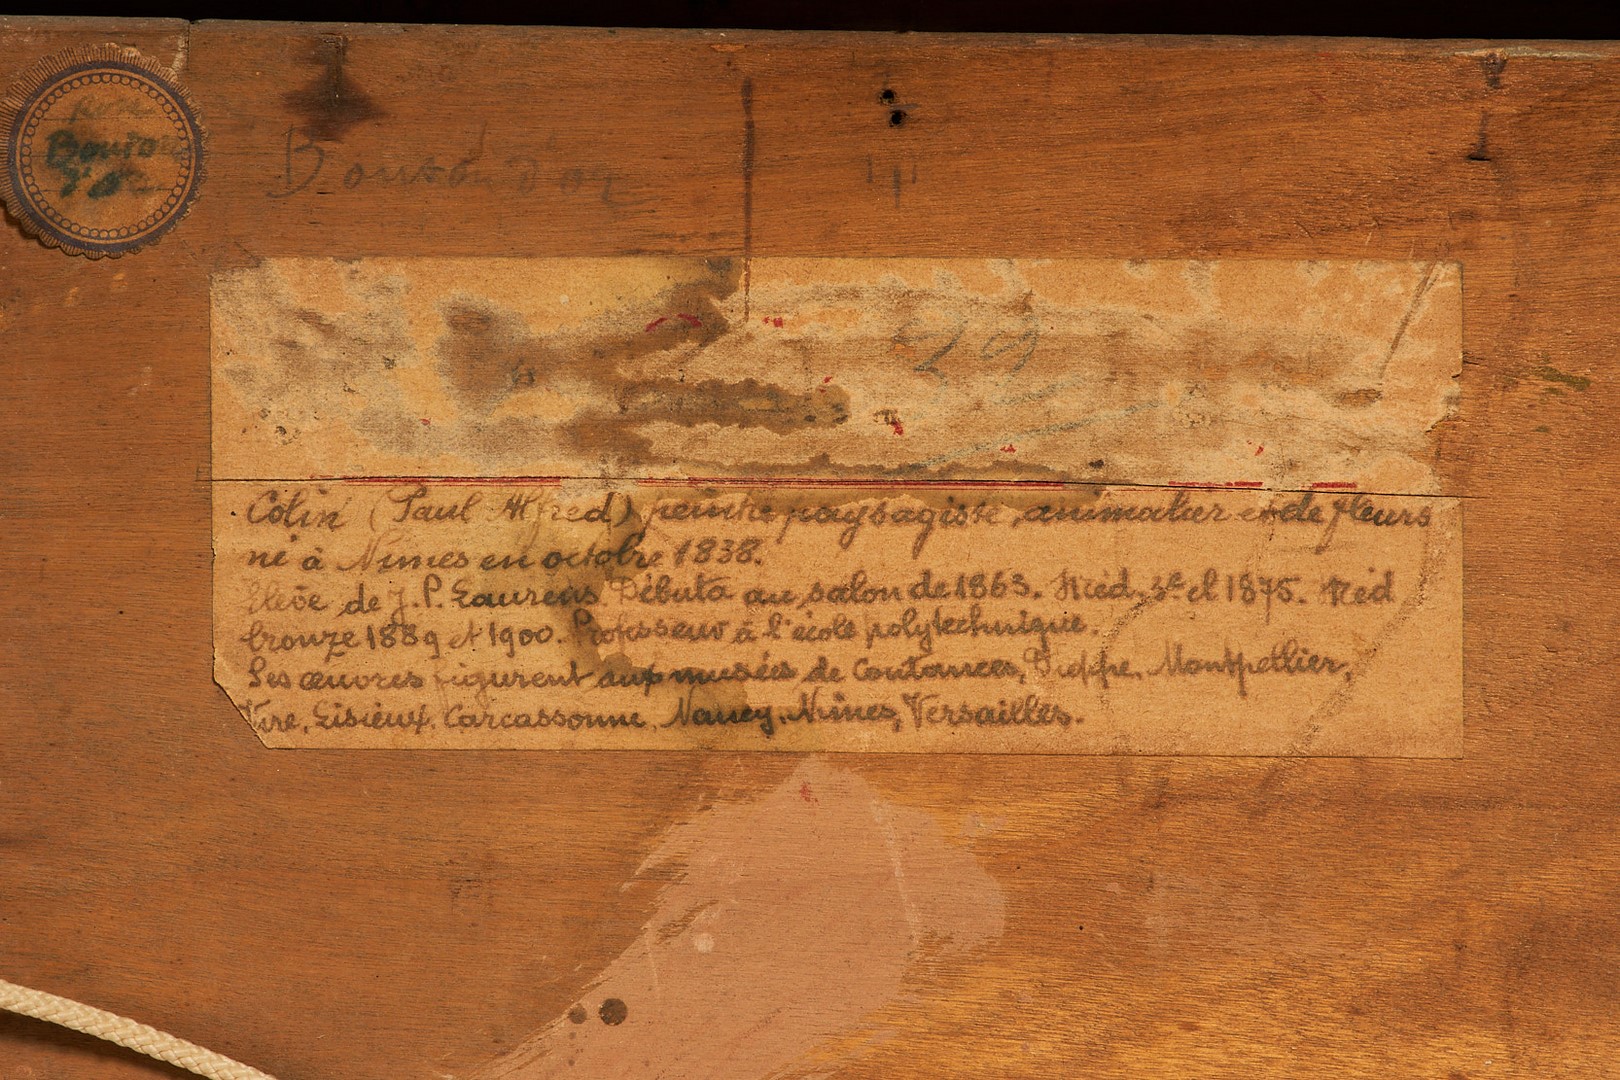 Bouton d'or
32
Colin (Paul Alfred) peintre paysagiste, animalier et de fleurs
né à Nimes en octobre 1838.
Elève de J. P. Laurens. Débuta au salon de 1863. Méd. 3e cl 1875. Méd
bronze 1889 et 1900. Professeur à l'école polytechnique.
Ses œuvres figurent aux musées de Coutances, Dieppe, Montpellier,
Vire, Lisieux, Carcassonne, Nancy, Nimes, Versailles.